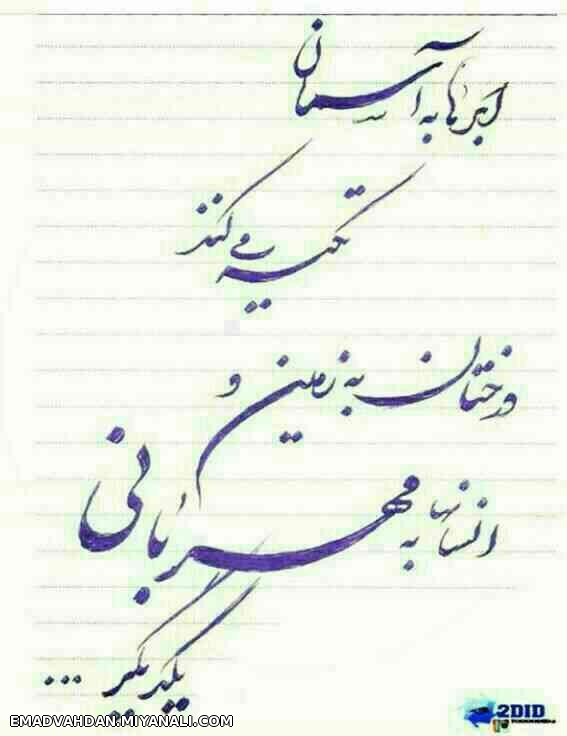 ابرها به آسمان
تکیه می‌کنند
درختان به زمین و
انسانها به مهربانی
یکدیگر ...
EMADVAHDAN.MIYANALI.COM
2DID